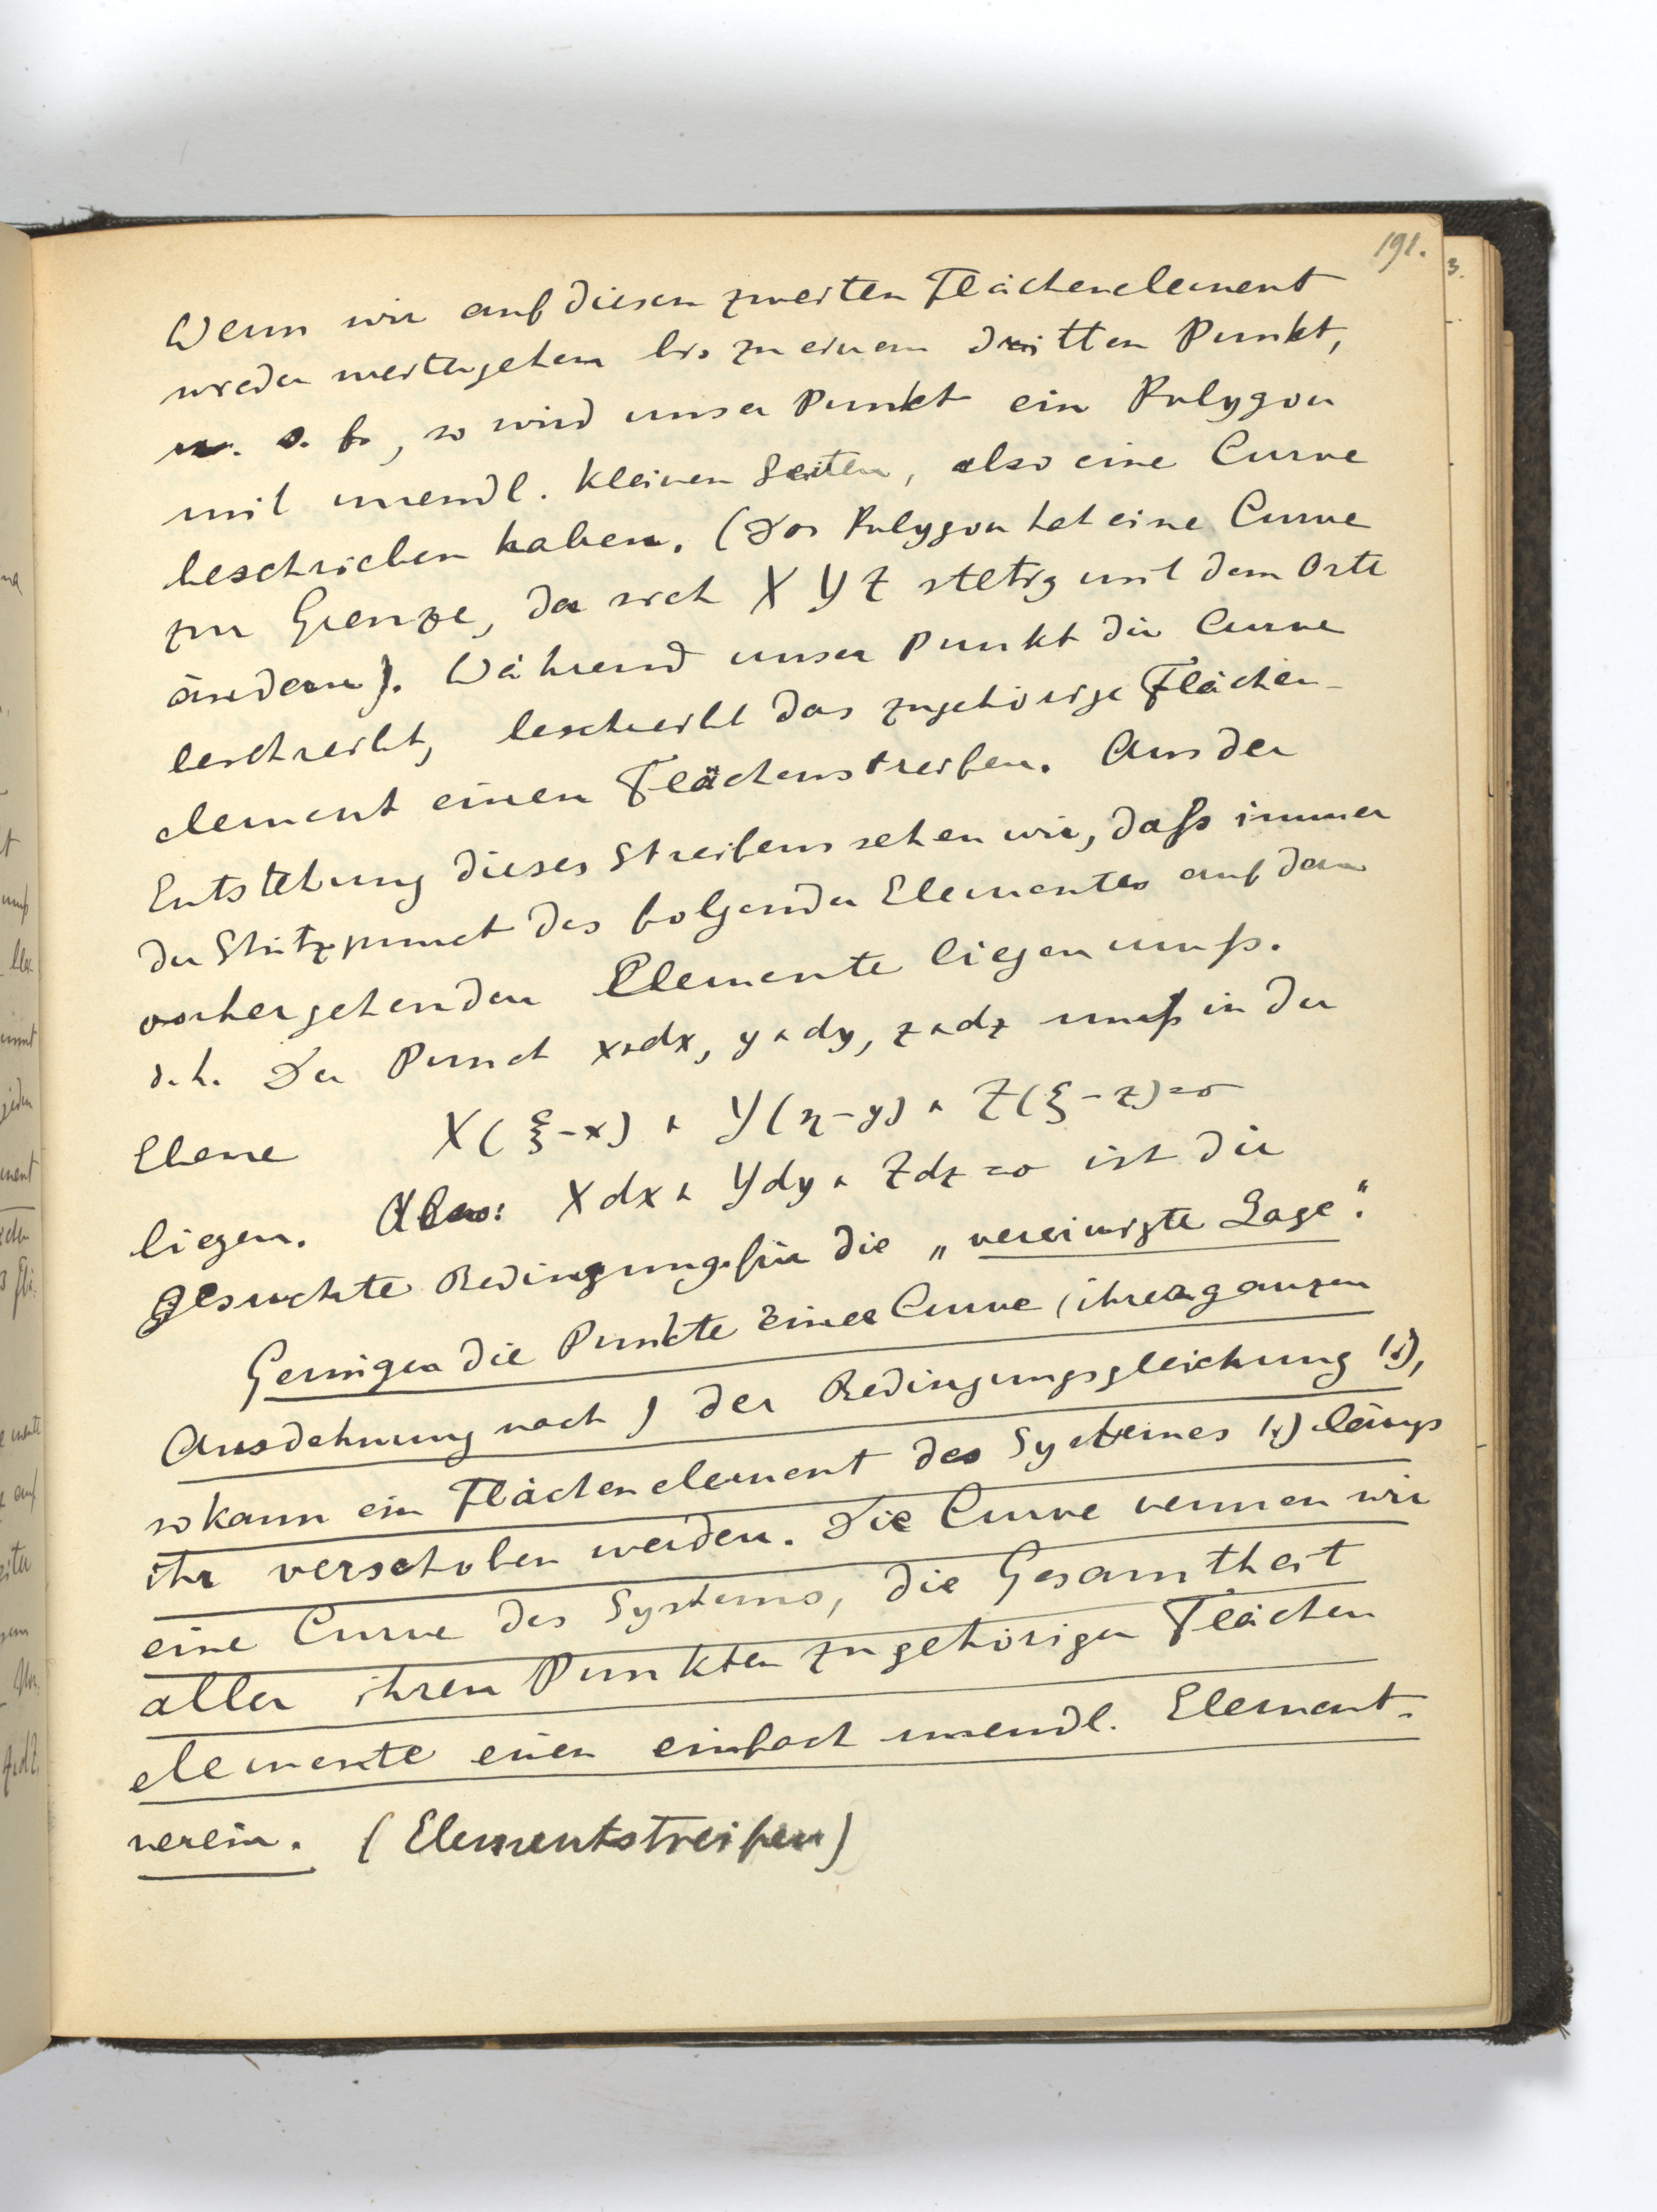 191.
Wenn wir auf diesem zweiten Flächenelement
wieder weitergehen bis zu einem dritten Punkt,
u. s. f., so wird unser Punkt ein Polygon
mit unendl. kleinen Seiten, also eine Curve
beschrieben haben. (Das Polygon hat eine Curve
zur Grenze, da sich X Y Z stetig mit dem Orte
ändern). Während unser Punkt die Curve
beschreibt, beschreibt das zugehörige Flächen-
element einen Flächenstreifen. Aus der
Entstehung dieses Streifens sehen wir, daß immer
der Stützpunct des folgenden Elementes auf dem
vorhergehenden Elemente liegen muß.
d. h. Der Punct x+dx, y+dy, z+dz muß in der
Ebene X(ξ-x) + Y(η-y) + Z(ζ-z)=0
liegen. Also: Xdx + Ydy + Zdz=0 ist die
gesuchte Bedingung für die „vereinigte Lage“.
Genügen die Punkte einer Curve (ihrer ganzen
Ausdehnung nach) der Bedingungsgleichung
so kann ein Flächenelement des Systemes längs
ihr verschoben werden. Die Curve nennen wir
eine Curve des Systems, die Gesamtheit
aller ihren Punkten zugehörigen Flächen
elemente einen einfach unendl. Element-
verein. (Elementstreifen)
3.